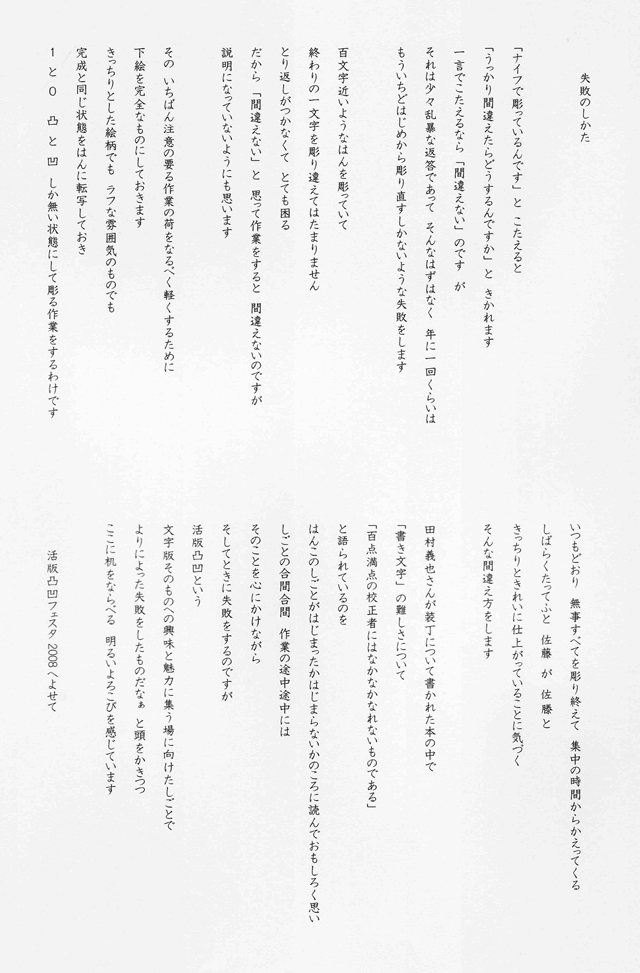 失敗のしかた
「ナイフで彫っているんです」と こたえると
「うっかり間違えたらどうするんですか」と きかれます
一言でこたえるなら「間違えない」のです が
それは少々乱暴な返答であって そんなはずはなく 年に一回くらいは
もういちどはじめから彫り直すしかないような失敗をします
百文字近いようなはんを彫っていて
終わりの一文字を彫り違えてはたまりません
とり返しがつかなくて とても困る
だから「間違えない」と 思って作業をすると 間違えないのですが
説明になっていないようにも思います
その いちばん注意の要る作業の荷をなるべく軽くするために
下絵を完全なものにしておきます
きっちりとした絵柄でも ラフな雰囲気のものでも
完成と同じ状態をはんに転写しておき
1 と 0 凸 と 凹 しか無い状態にして彫る作業をするわけです
いつもどおり 無事すべてを彫り終えて 集中の時間からかえってくる
しばらくたってふと 佐藤 が 佐滕 と
きっちりときれいに仕上がっていることに気づく
そんな間違え方をします
田村義也さんが装丁について書かれた本の中で
「書き文字」の難しさについて
「百点満点の校正者にはなかなかなれないものである」
と語られているのを
はんこのしごとがはじまったかはじまらないかのころに読んでおもしろく思い
しごとの合間合間 作業の途中途中には
そのことを心にかけながら
そしてときに失敗をするのですが
活版凸凹という
文字版そのものへの興味と魅力に集う場に向けたしごとで
よりによった失敗をしたものだなぁ と頭をかきつつ
ここに机をならべる 明るいよろこびを感じています
活版凸凹フェスタ 2008 へよせて